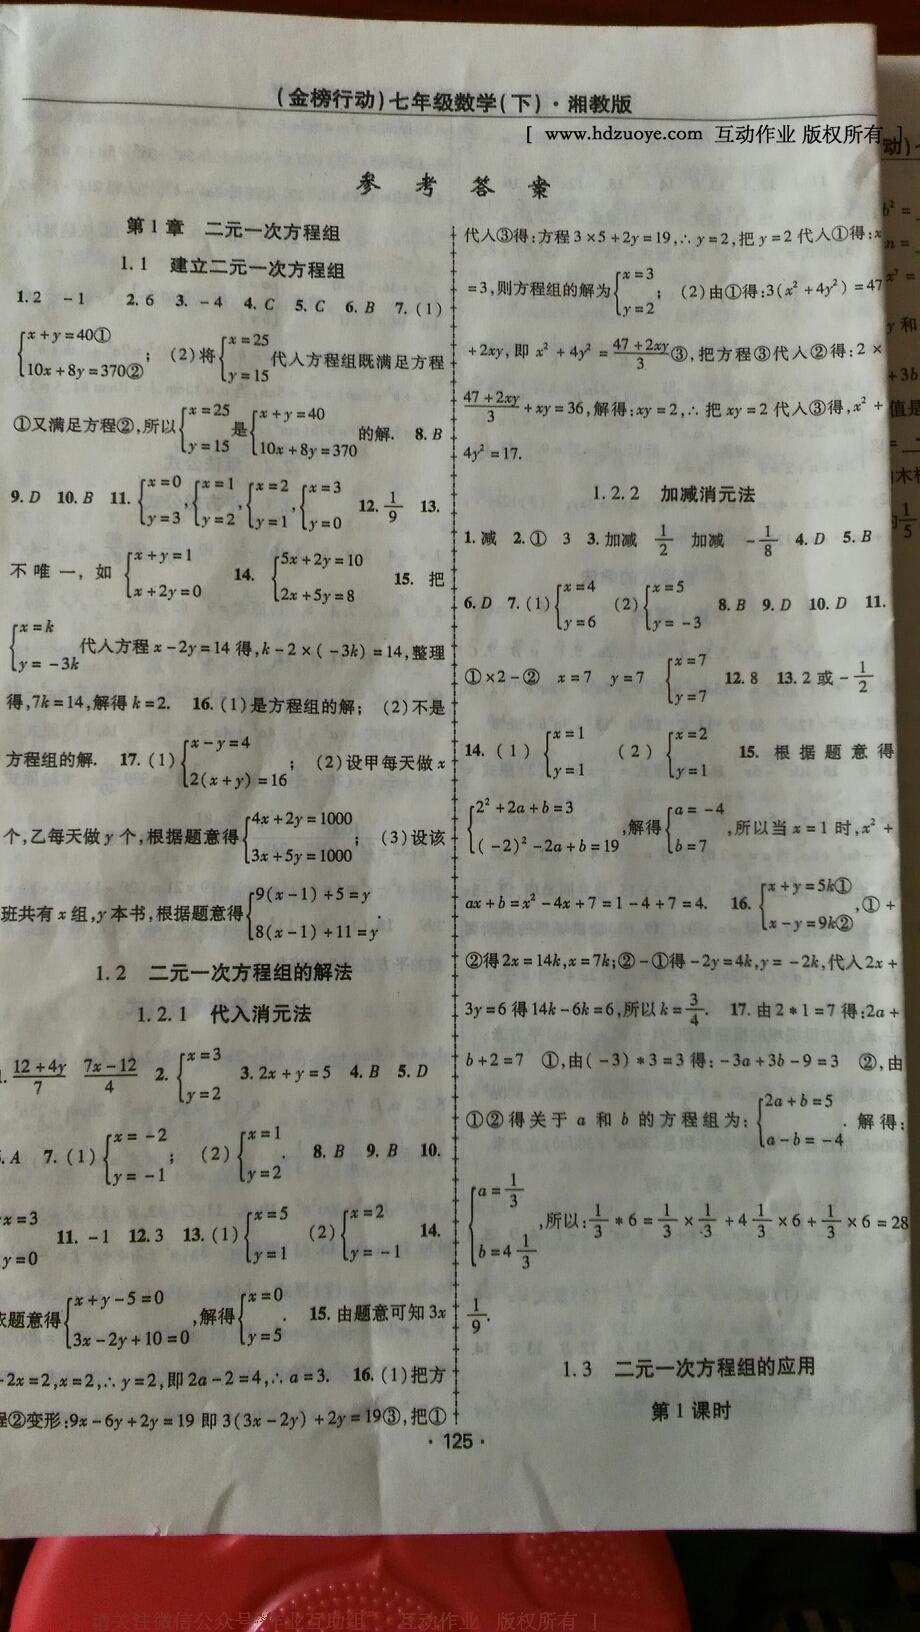 (金榜行动)七年级数学(下)·湘教版
[ www.hdzuoye.com 互动作业 版权所有 ]
参 考 答 案
第1章 二元一次方程组
1.1 建立二元一次方程组
1.2 -1 2.6 3.-4 4.C 5.C 6.B 7.(1)
{x+y=40① 10x+8y=370②; (2)将{x=25 y=15代入方程组既满足方程
①又满足方程②,所以{x=25 y=15是{x+y=40 10x+8y=370的解. 8.B
9.D 10.B 11.{x=0 y=3,{x=1 y=2,{x=2 y=1,{x=3 y=0 12.1/9 13.
不唯一,如{x+y=1 x+2y=0 14.{5x+2y=10 2x+5y=8 15.把
{x=k y=-3k代入方程x-2y=14得,k-2×(-3k)=14,整理
得,7k=14,解得k=2. 16.(1)是方程组的解; (2)不是
方程组的解. 17.(1){x-y=4 2(x+y)=16; (2)设甲每天做x
个,乙每天做y个,根据题意得{4x+2y=1000 3x+5y=1000; (3)设该
班共有x组,y本书,根据题意得{9(x-1)+5=y 8(x-1)+11=y.
1.2 二元一次方程组的解法
1.2.1 代入消元法
(12+4y)/7 (7x-12)/4 2.{x=3 y=2 3.2x+y=5 4.B 5.D
.A 7.(1){x=-2 y=-1; (2){x=1 y=2. 8.B 9.B 10.
x=3 y=0 11.-1 12.3 13.(1){x=5 y=1 (2){x=2 y=-1 14.
依题意得{x+y-5=0 3x-2y+10=0,解得{x=0 y=5. 15.由题意可知3x
-2x=2,x=2,∴y=2,即2a-2=4,∴a=3. 16.(1)把方
程②变形:9x-6y+2y=19即3(3x-2y)+2y=19③,把①
代入③得:方程3×5+2y=19,∴y=2,把y=2代入①得:x
=3,则方程组的解为{x=3 y=2; (2)由①得:3(x²+4y²)=47
+2xy,即x²+4y²=(47+2xy)/3③,把方程③代入②得:2×
(47+2xy)/3+xy=36,解得:xy=2,∴把xy=2代入③得,x²+
4y²=17.
1.2.2 加减消元法
1.减 2.① 3 3.加减 1/2 加减 -1/8 4.D 5.B
6.D 7.(1){x=4 y=6 (2){x=5 y=-3 8.B 9.D 10.D 11.
①×2-② x=7 y=7 {x=7 y=7 12.8 13.2或-1/2
14.(1){x=1 y=1 (2){x=2 y=1 15.根据题意得
{2²+2a+b=3 (-2)²-2a+b=19,解得{a=-4 b=7,所以当x=1时,x²+
ax+b=x²-4x+7=1-4+7=4. 16.{x+y=5k① x-y=9k②,①+
②得2x=14k,x=7k;②-①得-2y=4k,y=-2k,代入2x+
3y=6得14k-6k=6,所以k=3/4. 17.由2*1=7得:2a+
b+2=7 ①,由(-3)*3=3得:-3a+3b-9=3 ②,由
①②得关于a和b的方程组为:{2a+b=5 a-b=-4. 解得:
{a=1/3 b=4 1/3,所以:1/3*6=1/3×1/3+4 1/3×6+1/3×6=28
1/9.
1.3 二元一次方程组的应用
第1课时
·125·
[ 请关注微信公众号 作业互助组 互动作业 版权所有 ]